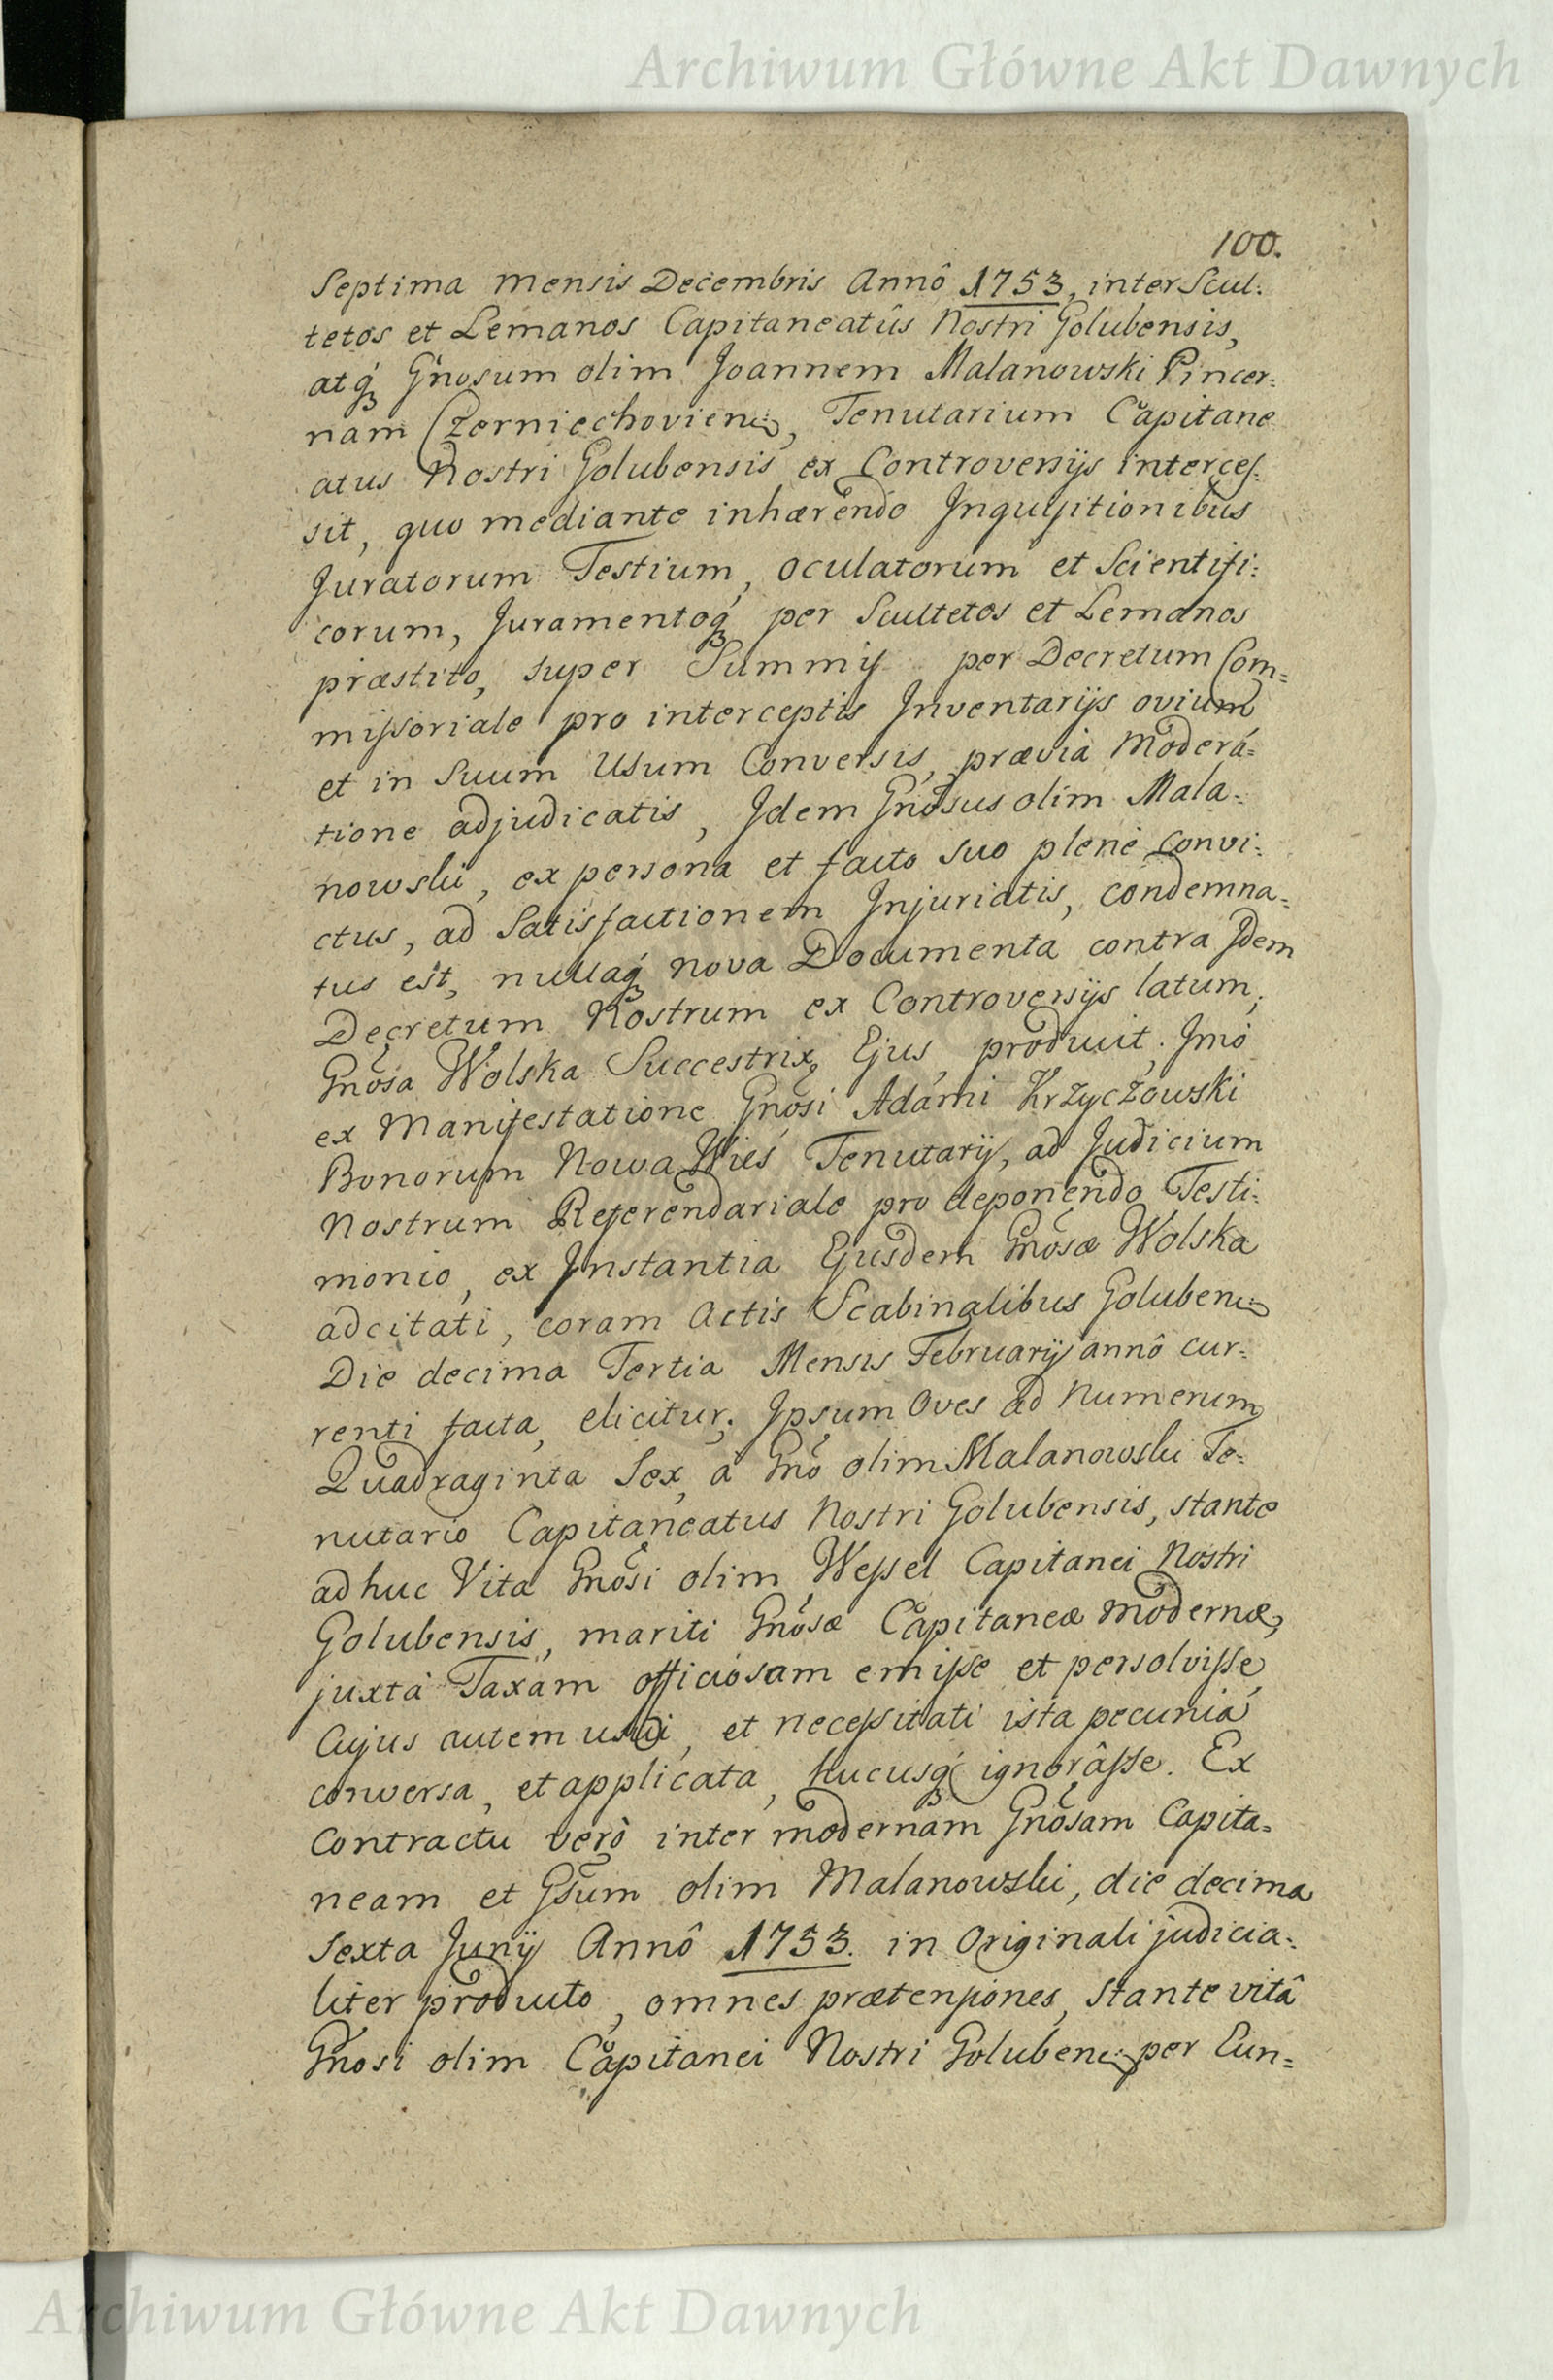 Archiwum Główne Akt Dawnych
100.
Septima mensis Decembris Annô 1753, inter Scul:
tetos et Lemanos Capitaneatûs Nostri Golubensis,
atq́ Gnosum olim Joannem Malanowski Pincer:
nam Czerniechovien:, Tenutarium Capitane
atus Nostri Golubensis ex Controversijs interces:
sit, quo mediante inhærendo Inquisitionibus
Juratorum Testium, oculatorum et Scientifi:
corum, Juramentoq́ per Scultetos et Lemanos
præstito, super Summis per Decretum Com=
missoriale pro interceptis Inventarijs ovium
et in Suum Usum Conversis, prævia Moderá=
tione adjudicatis, Idem Gnosus olim Mala=
nowski, ex persona et facto suo plenè convi:
ctus, ad Satisfactionem Injuriatis, condemna=
tus est, nullaq́ nova Documenta contra Idem
Decretum Nostrum ex Controversijs latum,
Gnosa Wolska Succestrix Ejus, produxit. Imò
ex Manifestatione Gnosi Adami Krzyczowski
Bonorum Nowa Wieś Tenutarij, ad Judicium
Nostrum Referendariale pro deponendo Testi:
monio, ex Instantia Ejusdem Gnosæ Wolska
adcitati, coram Actis Scabinalibus Goluben:
Die decima Tertia Mensis Februarij annô cur:
renti facta, elicitur; Ipsum Oves ad Numerum
Quadraginta Sex, à Gno olim Malanowski Te=
nutario Capitaneatus Nostri Golubensis, stante
adhuc Vita Gnosi olim Wessel Capitanei Nostri
Golubensis, mariti Gnosæ Capitaneæ modernæ,
juxta Taxam officiosam emisse et persolvisse,
Cujus autem usui, et necessitati ista pecunia
conversa, et applicata, hucusq́ ignorâsse. Ex
Contractu verò inter modernam Gnosam Capita=
neam et Gsum olim Malanowski, die decima
Sexta Junij Annô 1753. in Originali judicia:
liter producto, omnes prætensiones, stante vitâ
Gnosi olim Capitanei Nostri Goluben: per Eun=
Archiwum Główne Akt Dawnych